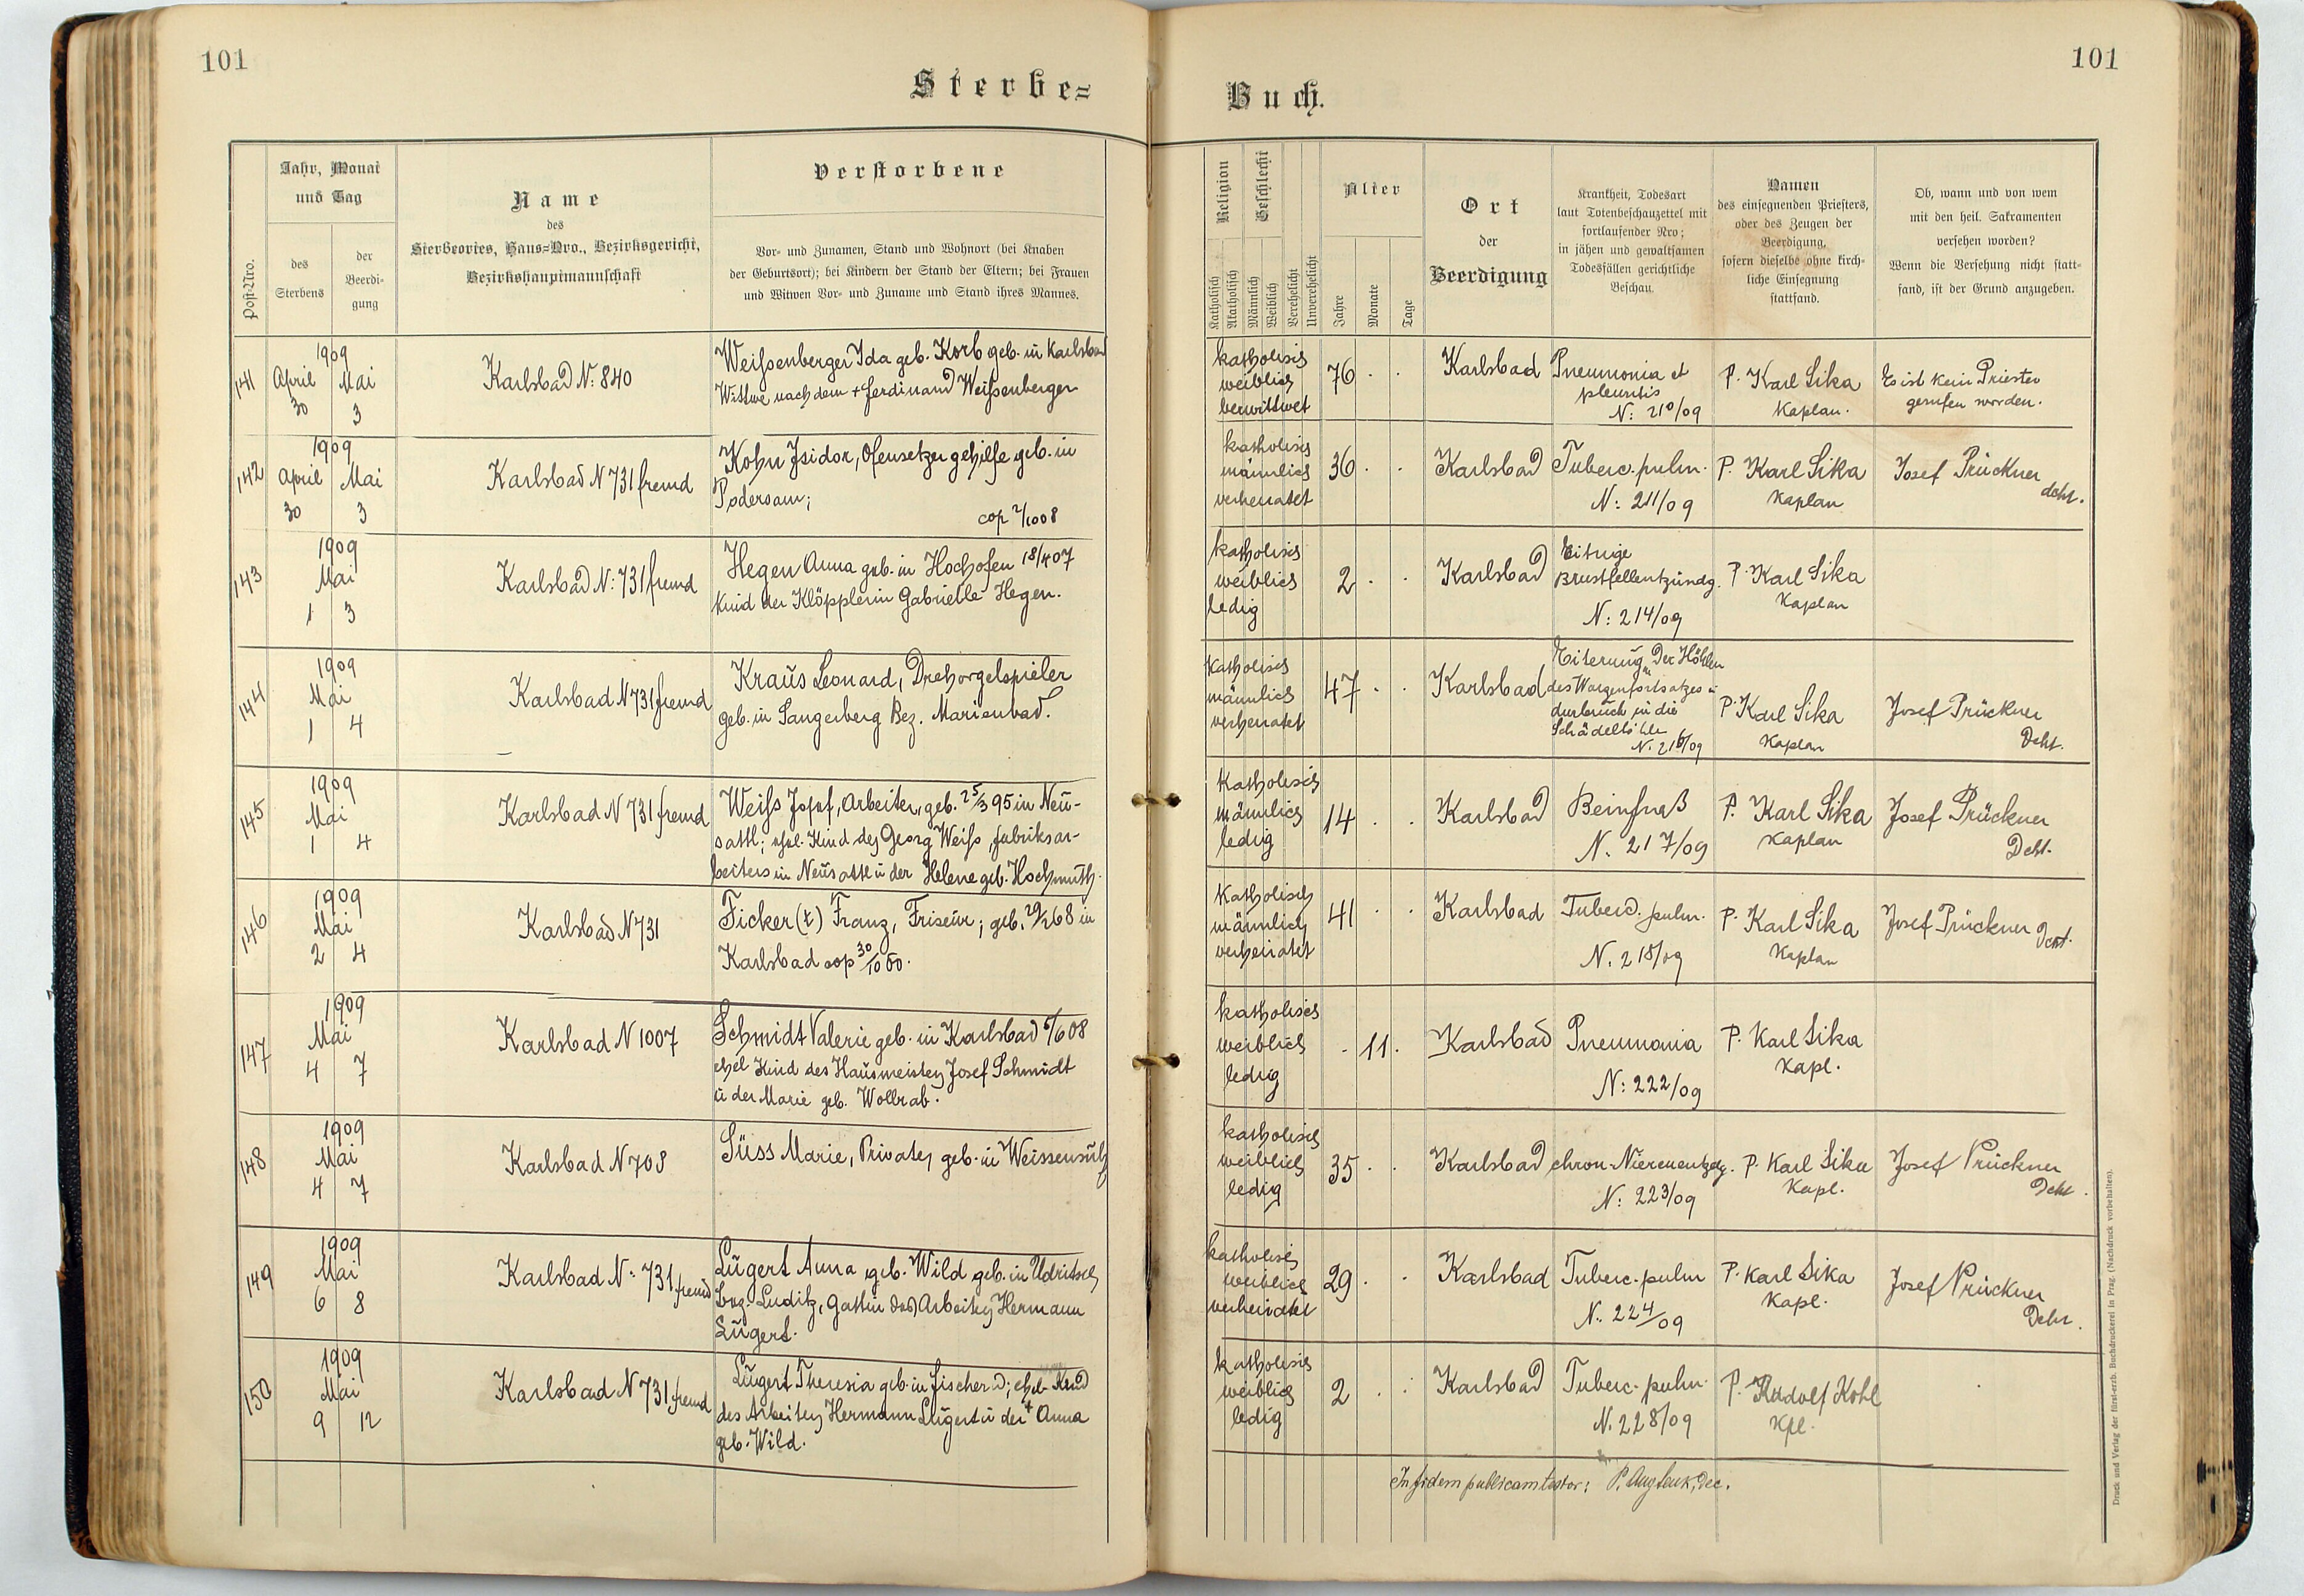 101
101
Sterbe=
Buch.
Post-Nro.
Jahr, Monat
und Tag
des
Sterbens
der
Beerdi-
gung
Name
des
Sterbeortes, Haus=Nro., Bezirksgericht,
Bezirkshauptmannschaft
Verstorbene
Vor- und Zunamen, Stand und Wohnort (bei Knaben
der Geburtsort); bei Kindern der Stand der Eltern; bei Frauen
und Witwen Vor- und Zuname und Stand ihres Mannes.
Religion
Katholisch
Akatholisch
Geschlecht
Männlich
Weiblich
Verehelicht
Unverehelicht
Alter
Jahre
Monate
Tage
Ort
der
Beerdigung
Krankheit, Todesart
laut Totenbeschauzettel mit
fortlaufender Nro;
in jähen und gewaltsamen
Todesfällen gerichtliche
Beschau.
Namen
des einsegnenden Priesters,
oder des Zeugen der
Beerdigung,
sofern dieselbe ohne kirch-
liche Einsegnung
stattfand.
Ob, wann und von wem
mit den heil. Sakramenten
versehen worden?
Wenn die Versehung nicht statt-
fand, ist der Grund anzugeben.
141
1909
April Mai
30 3
Karlsbad N: 840
Weißenberger Ida geb. Korb geb. in Karlsbad
Wittwe nach dem + Ferdinand Weißenberger
katholisch
weiblich
verwittwet
76 . .
Karlsbad
Pneumonia et
pleuritis
N: 210/09
P. Karl Sika
Kaplan.
Es ist kein Priester
gerufen worden.
142
1909
April Mai
30 3
Karlsbad N 731 fremd
Kohn Isidor, Ofensetzergehilfe geb. in
Podersam;
cop 2/10 08
katholisch
männlich
verheiratet
36 . .
Karlsbad
Tuberc. pulm.
N: 211/09
P. Karl Sika
Kaplan
Josef Prückner
decht.
143
1909
Mai
1 3
Karlsbad N: 731 fremd
Hegen Anna geb. in Hochofen 18/4 07
Kind der Klöpplerin Gabrielle Hegen.
katholisch
weiblich
ledig
2 . .
Karlsbad
Eitrige
Brustfellentzündg.
N: 214/09
P. Karl Sika
Kaplan
144
1909
Mai
1 4
Karlsbad N 731 fremd
Kraus Leonard, Drehorgelspieler
geb. in Sangerberg Bez. Marienbad.
katholisch
männlich
verheiratet
47 . .
Karlsbad
Eiterung der Höhlen
des Warzenfortsatzes u
durbruch in die
Schädelhöhle
N. 216/09
P. Karl Sika
Kaplan
Josef Prückner
Decht.
145
1909
Mai
1 4
Karlsbad N 731 fremd
Weiss Josef, Arbeiter, geb. 25/3 95 in Neu-
sattl; ehel. Kind des Georg Weiss, fabriksar-
beiters in Neusattl u der Helene geb. Hochmuth.
Katholisch
männlich
ledig
14 . .
Karlsbad
Beinfraß
N. 217/09
P. Karl Sika
Kaplan
Josef Prückner
Decht.
146
1909
Mai
2 4
Karlsbad N 731
Ficker (t) Franz, Friseur; geb. 29/2 68 in
Karlsbad cop 30/10 00.
Katholisch
männlich
verheiratet
41 . .
Karlsbad
Tuberc. pulm.
N. 218/09
P. Karl Sika
Kaplan
Josef Prückner Decht.
147
1909
Mai
4 7
Karlsbad N 1007
Schmidt Valerie geb. in Karlsbad 6/6 08
ehel Kind des Hausmeisters Josef Schmidt
u der Marie geb. Wollrab.
katholisch
weiblich
ledig
. 11 .
Karlsbad
Pneumonia
N: 222/09
P. Karl Sika
Kapl.
148
1909
Mai
4 7
Karlsbad N 708
Süss Marie, Private, geb. in Weissensulz
katholisch
weiblich
ledig
35 . .
Karlsbad
chron. Nierenentzdg.
N: 223/09
P. Karl Sika
Kapl.
Josef Prückner
Decht.
149
1909
Mai
6 8
Karlsbad N: 731 fremd
Lugert Anna geb. Wild geb. in Udritsch
Bez. Luditz, Gattin des Arbeiters Hermann
Lugert.
katholisch
weiblich
verheiratet
29 . .
Karlsbad
Tuberc. pulm
N. 224/09
P. Karl Sika
Kapl.
Josef Prückner
Decht.
150
1909
Mai
9 12
Karlsbad N 731 fremd
Lugert Theresia geb. in Fischern; ehel. Kind
des Arbeiters Hermann Lugert u der + Anna
geb. Wild.
katholisch
weiblich
ledig
2 . .
Karlsbad
Tuberc. pulm.
N. 228/09
P. Rudolf Kohl
Kpl.
In fidem publicam testor: P. Aug
Druck und Verlag der fürst-erzb. Buchdruckerei in Prag. (Nachdruck vorbehalten).